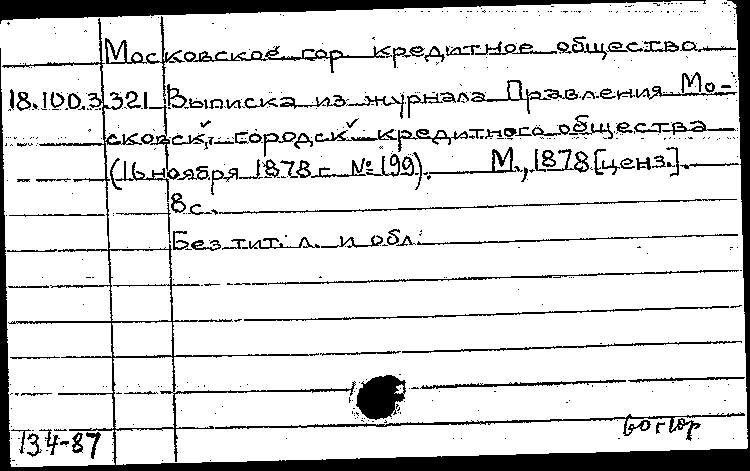 Московское гор кредитное общество
18.100.3.321 Выписка из журнала Правления Мо-
сковск. городск. кредитного общества
(16 ноября 1878 г. № 199). М., 1878 [ценз.].
8 с.
Без тит. л. и обл.
134-87